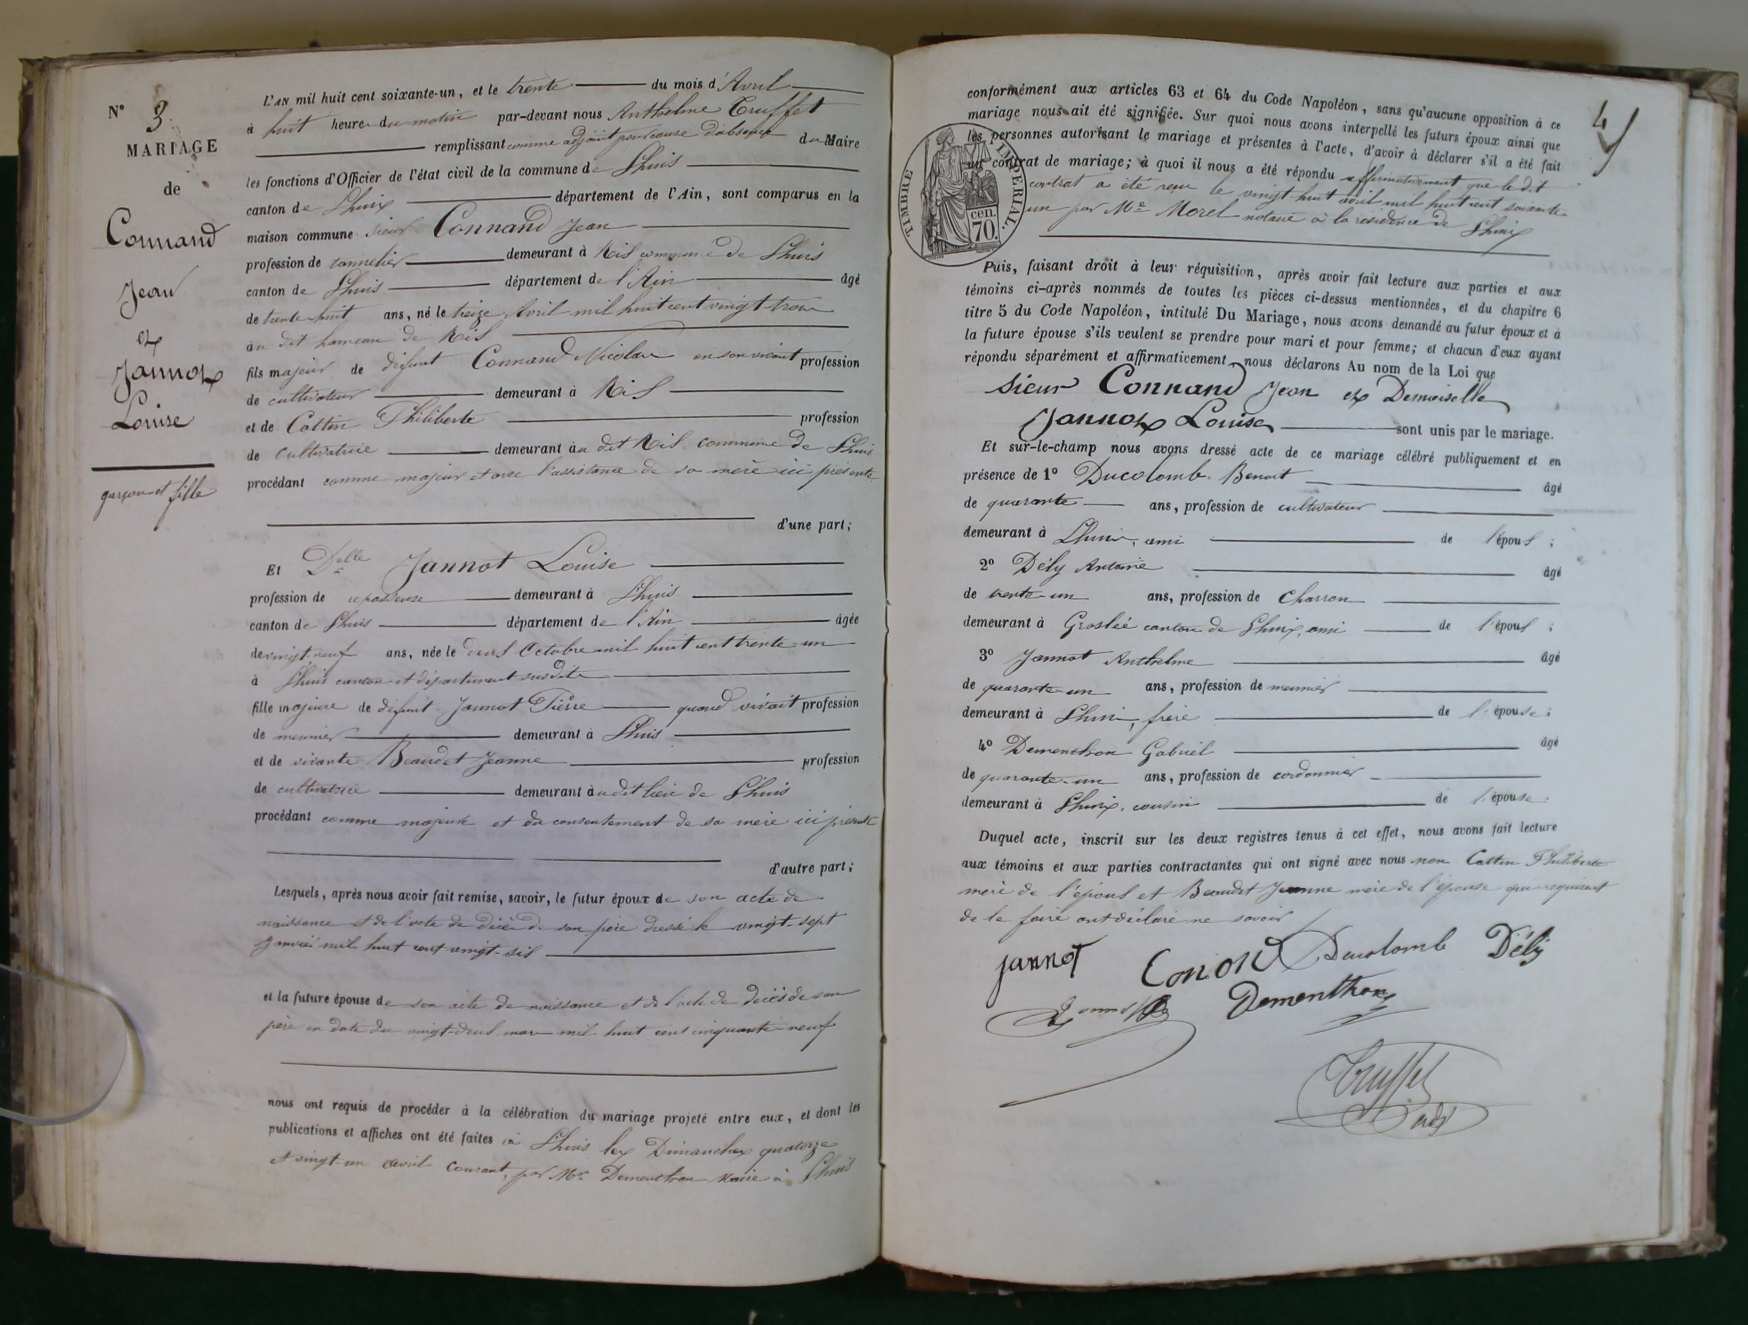 N° 3.
MARIAGE
de
Connand
Jean
et
Jannot
Louise
garçon et fille
L'AN mil huit cent soixante-un, et le trente du mois d'Avril
à huit heure du matin par-devant nous Anthelme Truffet
remplissant comme adjoint pour cause d'absence du Maire
les fonctions d'Officier de l'état civil de la commune de Lhuis
canton de Lhuis département de l'Ain, sont comparus en la
maison commune sieur Connand Jean
profession de tonnelier demeurant à Ris commune de Lhuis
canton de Lhuis département de l'Ain âgé
de trente huit ans, né le treize Avril mil huit cent vingt-trois
au dit hameau de Ris
fils majeur de défunt Connand Nicolas en son vivant profession
de cultivateur demeurant à Ris
et de Cottin Philiberte profession
de cultivatrice demeurant au dit Ris commune de Lhuis
procédant comme majeur et avec l'assistance de sa mère ici présente
d'une part;
Et Dlle Jannot Louise
profession de repasseuse demeurant à Lhuis
canton de Lhuis département de l'Ain âgée
de vingt-neuf ans, née le deux Octobre mil huit cent trente-un
à Lhuis canton et département susdits
fille majeure de défunt Jannot Pierre quand vivait profession
de meunier demeurant à Lhuis
et de vivante Beaudet Jeanne profession
de cultivatrice demeurant au dit lieu de Lhuis
procédant comme majeure et du consentement de sa mère ici présente
d'autre part;
Lesquels, après nous avoir fait remise, savoir, le futur époux de son acte de
naissance et de l'acte de décès de son père dressé le vingt-sept
Janvier mil huit cent vingt-six
et la future épouse de son acte de naissance et de l'acte de décès de son
père en date du vingt-deux mars mil huit cent cinquante-neuf
nous ont requis de procéder à la célébration du mariage projeté entre eux, et dont les
publications et affiches ont été faites à Lhuis les Dimanches quatorze
et vingt-un avril courant, par Mr Dementhon Maire à Lhuis
4
conformément aux articles 63 et 64 du Code Napoléon, sans qu'aucune opposition à ce
mariage nous ait été signifiée. Sur quoi nous avons interpellé les futurs époux ainsi que
les personnes autorisant le mariage et présentes à l'acte, d'avoir à déclarer s'il a été fait
un contrat de mariage; à quoi il nous a été répondu affirmativement que le dit
contrat a été reçu le vingt huit avril mil huit cent soixante-
un par Me Morel notaire à la résidence de Lhuis
TIMBRE IMPERIAL.
cen.
70.
Puis, faisant droit à leur réquisition, après avoir fait lecture aux parties et aux
témoins ci-après nommés de toutes les pièces ci-dessus mentionnées, et du chapitre 6
titre 5 du Code Napoléon, intitulé Du Mariage, nous avons demandé au futur époux et à
la future épouse s'ils veulent se prendre pour mari et pour femme; et chacun d'eux ayant
répondu séparément et affirmativement, nous déclarons Au nom de la Loi que
Sieur Connand Jean et Demoiselle
Jannot Louise sont unis par le mariage.
Et sur-le-champ nous avons dressé acte de ce mariage célébré publiquement et en
présence de 1° Ducolomb Benoit âgé
de quarante ans, profession de cultivateur
demeurant à Lhuis, ami de l'époux;
2° Dély Antoine âgé
de trente-un ans, profession de charron
demeurant à Groslée canton de Lhuis, ami de l'époux;
3° Jannot Anthelme âgé
de quarante-un ans, profession de meunier
demeurant à Lhuis, frère de l'épouse;
4° Dementhon Gabriel âgé
de quarante-un ans, profession de cordonnier
demeurant à Lhuis, cousin de l'épouse.
Duquel acte, inscrit sur les deux registres tenus à cet effet, nous avons fait lecture
aux témoins et aux parties contractantes qui ont signé avec nous non Cottin Philiberte
mère de l'époux et Beaudet Jeanne mère de l'épouse qui requises
de le faire ont déclaré ne savoir
jannot Conond Ducolomb Dély
Jannot Dementhon
Truffet
adj